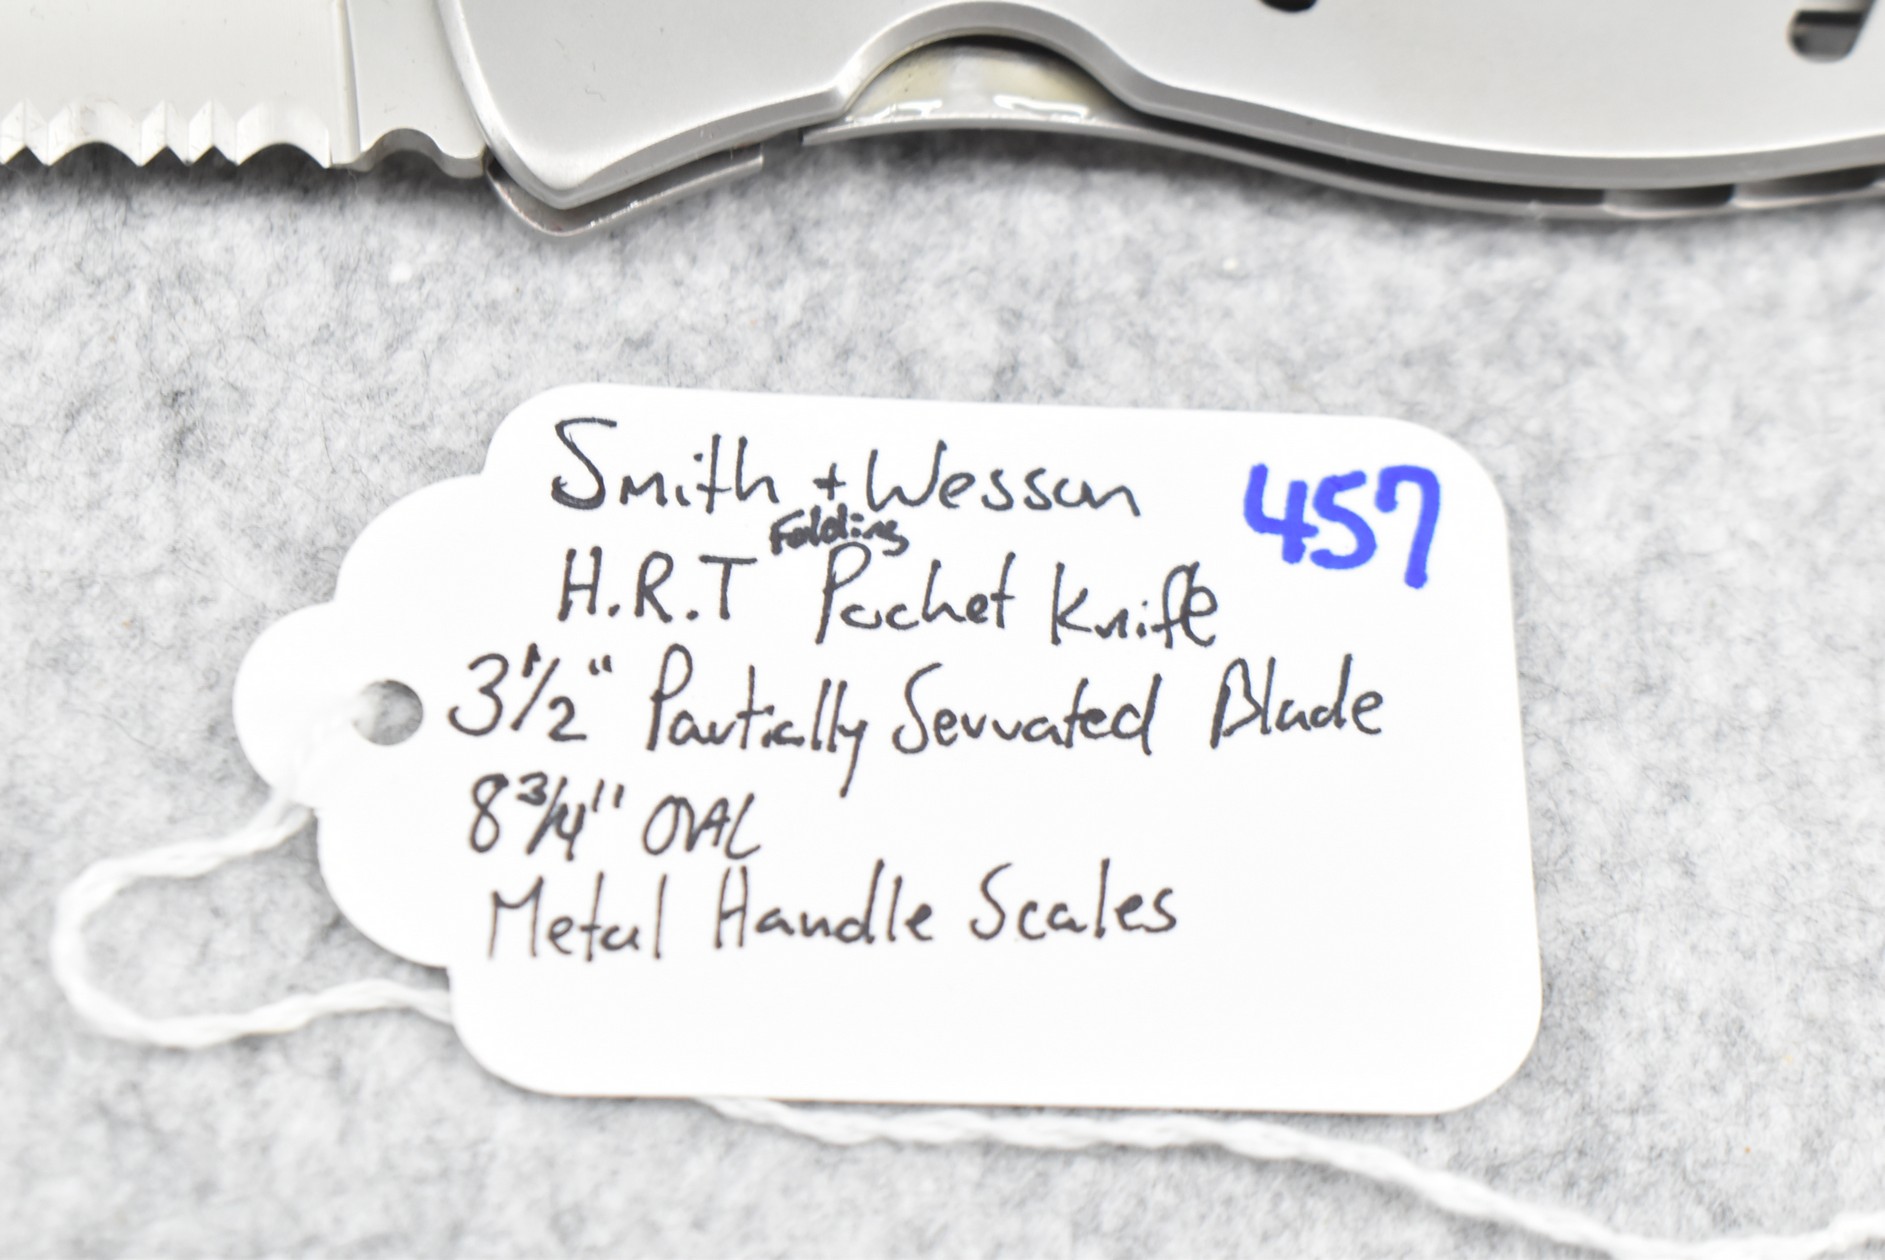 Smith + Wesson 457
Folding
H.R.T Pocket Knife
3 1/2" Partially Serrated Blade
8 3/4" OVAL
Metal Handle Scales